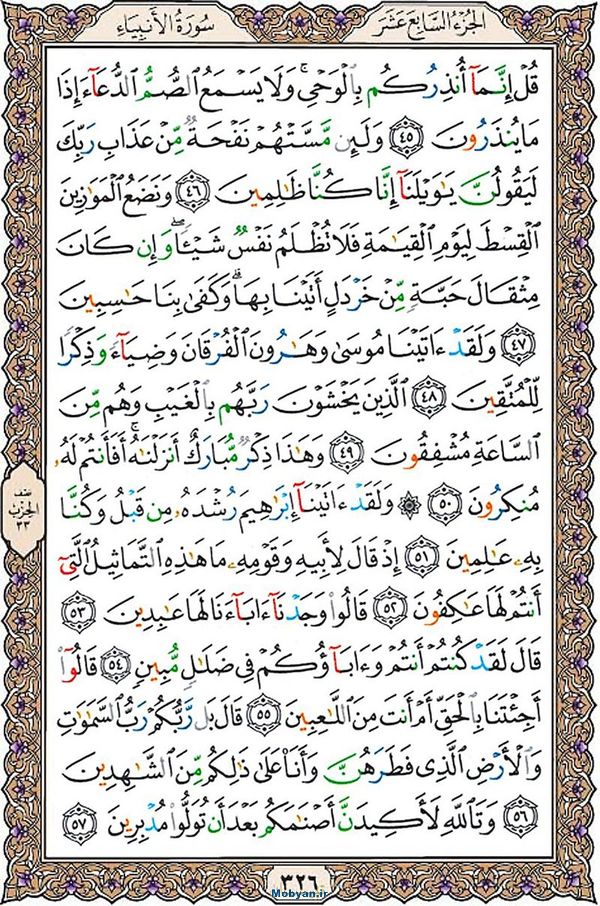 الجزء السابع عشر
سورة الأنبياء
قُلْ إِنَّمَآ أُنذِرُكُم بِٱلْوَحْىِ ۚ وَلَا يَسْمَعُ ٱلصُّمُّ ٱلدُّعَآءَ إِذَا
مَا يُنذَرُونَ ٤٥ وَلَئِن مَّسَّتْهُمْ نَفْحَةٌ مِّنْ عَذَابِ رَبِّكَ
لَيَقُولُنَّ يَٰوَيْلَنَآ إِنَّا كُنَّا ظَٰلِمِينَ ٤٦ وَنَضَعُ ٱلْمَوَٰزِينَ
ٱلْقِسْطَ لِيَوْمِ ٱلْقِيَٰمَةِ فَلَا تُظْلَمُ نَفْسٌ شَيْـًٔا ۖ وَإِن كَانَ
مِثْقَالَ حَبَّةٍ مِّنْ خَرْدَلٍ أَتَيْنَا بِهَا ۗ وَكَفَىٰ بِنَا حَٰسِبِينَ
٤٧ وَلَقَدْ ءَاتَيْنَا مُوسَىٰ وَهَٰرُونَ ٱلْفُرْقَانَ وَضِيَآءً وَذِكْرًا
لِّلْمُتَّقِينَ ٤٨ ٱلَّذِينَ يَخْشَوْنَ رَبَّهُم بِٱلْغَيْبِ وَهُم مِّنَ
ٱلسَّاعَةِ مُشْفِقُونَ ٤٩ وَهَٰذَا ذِكْرٌ مُّبَارَكٌ أَنزَلْنَٰهُ ۚ أَفَأَنتُمْ لَهُۥ
مُنكِرُونَ ٥٠ ۞ وَلَقَدْ ءَاتَيْنَآ إِبْرَٰهِيمَ رُشْدَهُۥ مِن قَبْلُ وَكُنَّا
بِهِۦ عَٰلِمِينَ ٥١ إِذْ قَالَ لِأَبِيهِ وَقَوْمِهِۦ مَا هَٰذِهِ ٱلتَّمَاثِيلُ ٱلَّتِىٓ
أَنتُمْ لَهَا عَٰكِفُونَ ٥٢ قَالُوا۟ وَجَدْنَآ ءَابَآءَنَا لَهَا عَٰبِدِينَ ٥٣
قَالَ لَقَدْ كُنتُمْ أَنتُمْ وَءَابَآؤُكُمْ فِى ضَلَٰلٍ مُّبِينٍ ٥٤ قَالُوٓا۟
أَجِئْتَنَا بِٱلْحَقِّ أَمْ أَنتَ مِنَ ٱللَّٰعِبِينَ ٥٥ قَالَ بَل رَّبُّكُمْ رَبُّ ٱلسَّمَٰوَٰتِ
وَٱلْأَرْضِ ٱلَّذِى فَطَرَهُنَّ وَأَنَا۠ عَلَىٰ ذَٰلِكُم مِّنَ ٱلشَّٰهِدِينَ
٥٦ وَتَٱللَّهِ لَأَكِيدَنَّ أَصْنَٰمَكُم بَعْدَ أَن تُوَلُّوا۟ مُدْبِرِينَ ٥٧
نصف
الحزب
٣٣
٣٢٦
Mobyan.ir